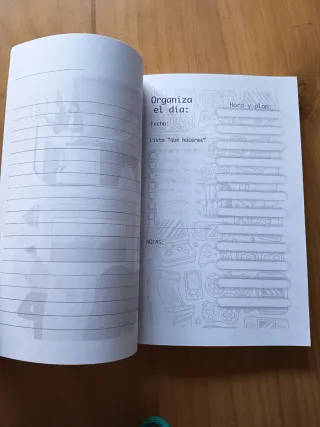 Organiza
el día:
Hora y plan:
Fecha:
Lista "qué haceres"
NOTAS: